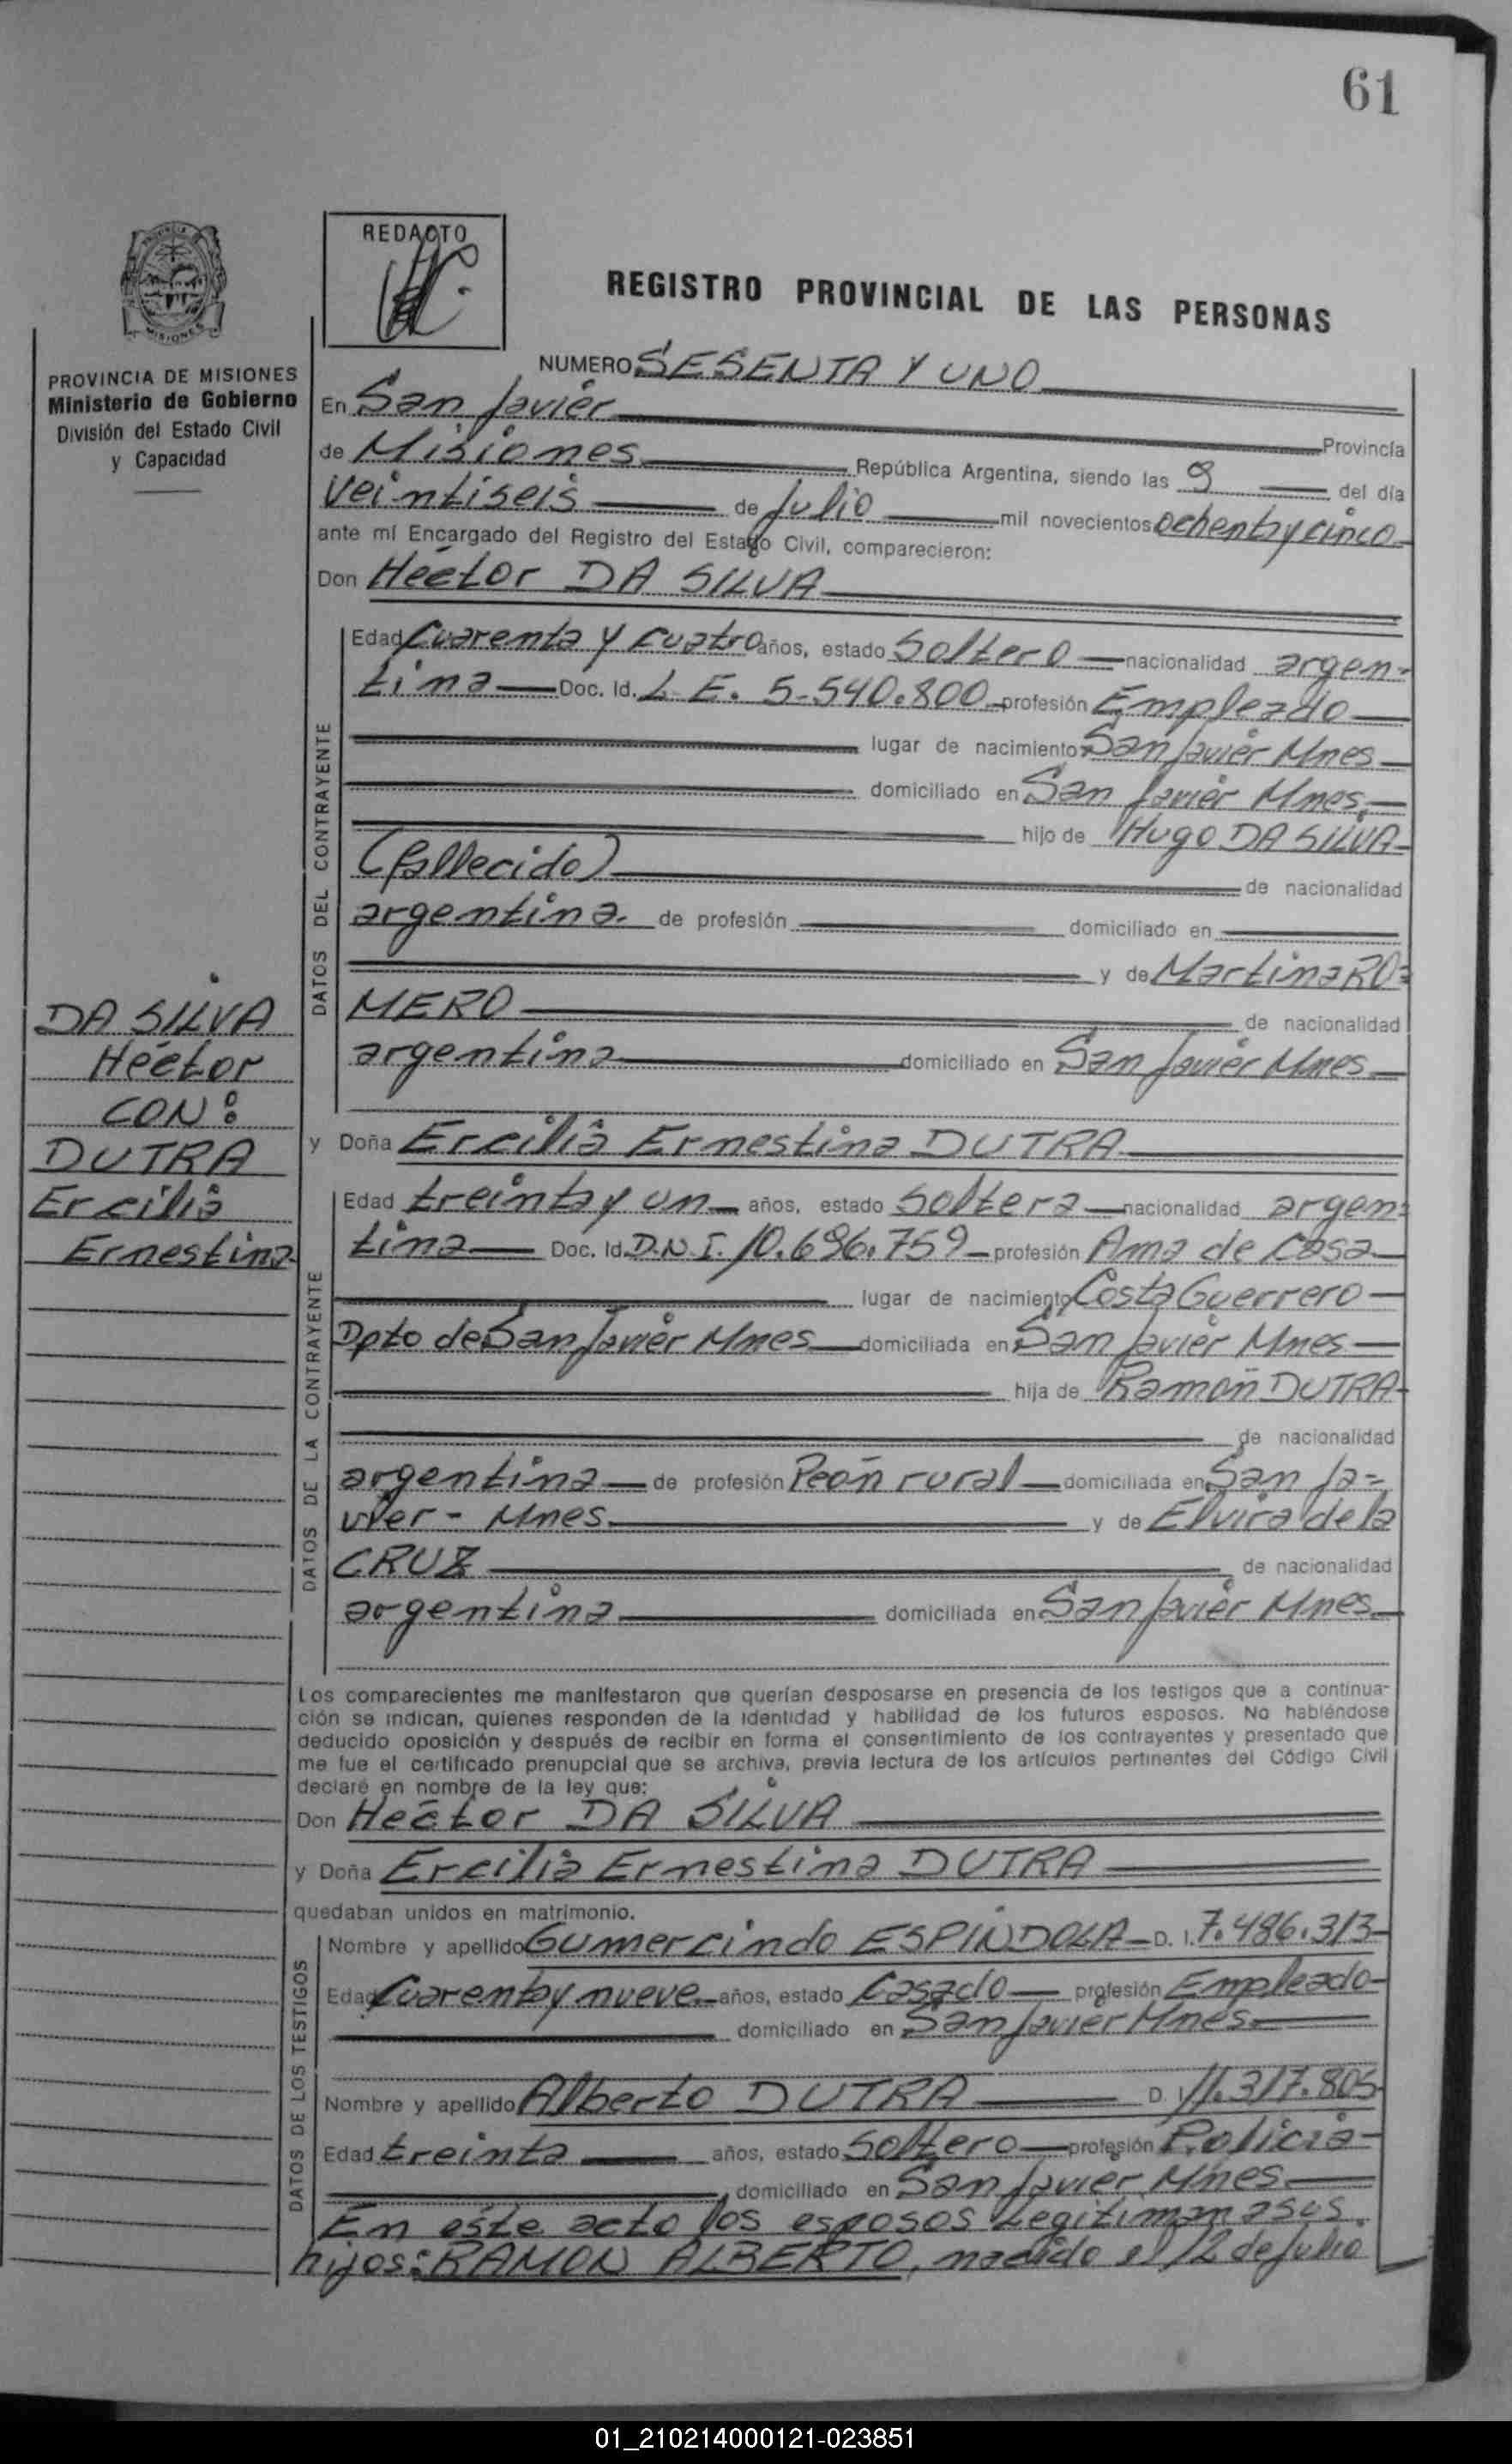 61
REDACTO
REGISTRO PROVINCIAL DE LAS PERSONAS
PROVINCIA DE MISIONES
Ministerio de Gobierno
División del Estado Civil
y Capacidad
NUMERO SESENTA Y UNO
En San Javier Provincia
de Misiones República Argentina, siendo las 9 del día
veintiseis de Julio mil novecientos ochenta y cinco
ante mí Encargado del Registro del Estado Civil, comparecieron:
Don Héctor DA SILVA
DATOS DEL CONTRAYENTE
Edad Cuarenta y cuatro años, estado Soltero nacionalidad argen-
tina Doc. Id. L.E. 5.540.800 profesión Empleado
lugar de nacimiento San Javier Mnes
domiciliado en San Javier Mnes
hijo de Hugo DA SILVA
(fallecido) de nacionalidad
argentina. de profesión domiciliado en
y de Martina RO=
MERO de nacionalidad
argentina domiciliado en San Javier Mnes
DA SILVA
Héctor
CON:
DUTRA
Ercilia
Ernestina
y Doña Ercilia Ernestina DUTRA
DATOS DE LA CONTRAYENTE
Edad treinta y un años, estado Soltera nacionalidad argen=
tina Doc. Id. D.N.I. 10.696.759 profesión Ama de casa
lugar de nacimiento Costa Guerrero
Dpto de San Javier Mnes domiciliada en San Javier Mnes
hija de Ramón DUTRA
de nacionalidad
argentina de profesión Peón rural domiciliada en San Ja=
vier - Mnes y de Elvira de la
CRUZ de nacionalidad
argentina domiciliada en San Javier Mnes
Los comparecientes me manifestaron que querían desposarse en presencia de los testigos que a continua-
ción se indican, quienes responden de la identidad y habilidad de los futuros esposos. No habiéndose
deducido oposición y después de recibir en forma el consentimiento de los contrayentes y presentado que
me fue el certificado prenupcial que se archiva, previa lectura de los artículos pertinentes del Código Civil
declaré en nombre de la ley que:
Don Héctor DA SILVA
y Doña Ercilia Ernestina DUTRA
quedaban unidos en matrimonio.
DATOS DE LOS TESTIGOS
Nombre y apellido Gumercindo ESPINDOLA D. I. 7.486.313
Edad Cuarenta y nueve años, estado Casado profesión Empleado
domiciliado en San Javier Mnes
Nombre y apellido Alberto DUTRA D. I. 11.317.805
Edad treinta años, estado Soltero profesión Policía
domiciliado en San Javier Mnes
En este acto los esposos Legitiman a sus
hijos: RAMON ALBERTO, nacido el 12 de julio
01_210214000121-023851